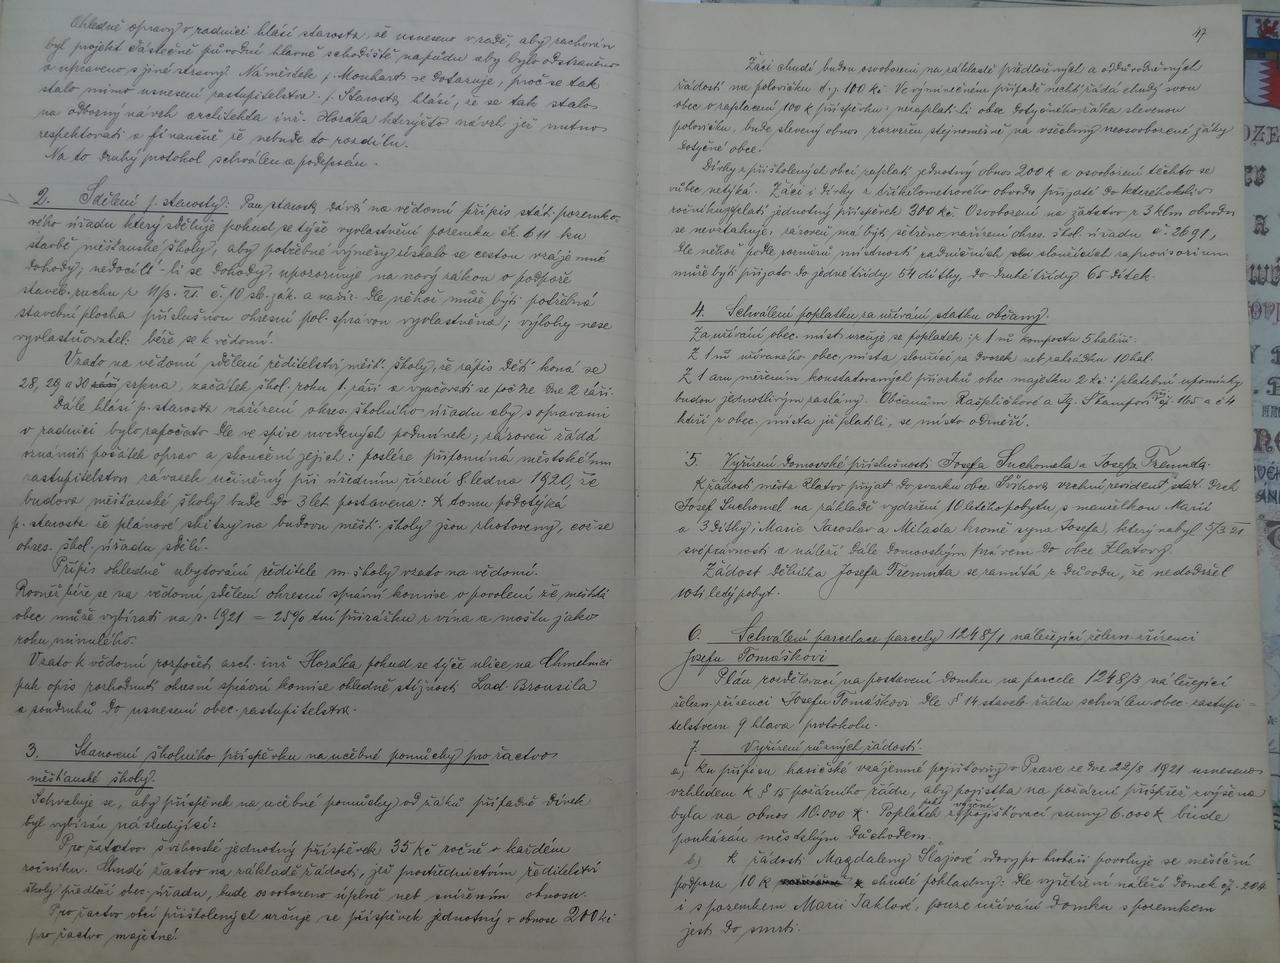 Ohledně opravy v radnici hlásí starosta, že usneseno v radě, aby zachován
byl projekt částečně původní hlavně schodiště na půdu aby bylo odstraněno
a upraveno s jiné strany. Náměstek p. Monhart se dotazuje, proč se tak
stalo mimo usnesení zastupitelstva. p. Starosta hlásí, že se tak stalo
na odborný návrh architekta inž. Horáka kterýžto návrh jej nutno
respektovati a finančně že nebude to rozdílu.
Na to druhý protokol schválen a podepsán.
2. Sdělení p. starosty: Pan starosta dává na vědomí přípis stát. pozemko-
vého úřadu který sděluje pokud se týče vyvlastnění pozemku čk. 611 ku
stavbě měšťanské školy, aby potřebné výměry získalo se cestou vzájemné
dohody; nedocílí-li se dohody, upozorňuje na nový zákon o podpoře
staveb. ruchu z 11/3. 21. č. 10 sb. zák. a nař. dle něhož může býti potřebná
stavební plocha příslušnou okresní pol. správou vyvlastněna; výlohy nese
vyvlastňovatel: béře se k vědomí.
Vzato na vědomí sdělení ředitelství měšť. školy, že zápis dětí koná se
28, 29 a 30 srpna, začátek škol. roku 1. září a vyučovati se počne dne 2 září.
Dále hlásí p. starosta nařízení okres. školního úřadu aby s opravami
v radnici bylo započato dle ve spise uvedených podmínek; zároveň žádá
oznámiti počátek oprav a skončení jejich: posléze připomíná městskému
zastupitelstvu závazek učiněný při úředním řízení 8 ledna 1920, že
budova měšťanské školy bude do 3 let postavena: K tomu podotýká
p. starosta že plánové skizzy na budovu měšť. školy jsou zhotoveny, což se
okres. škol. úřadu sdělí.
Přípis ohledně ubytování ředitele m. školy vzato na vědomí.
Rovněž béře se na vědomí sdělení okresní správní komise o povolení že, místní
obec může vybírati na r. 1921 = 25% tní přirážku z vína a moštu jako
roku minulého.
Vzato k vědomí rozpočet arch. inž Horáka pokud se týče ulice na Chmelnici
pak opis rozhodnutí okresní správní komise ohledně stížnosti Lad. Brousila
a soudruhů do usnesení obec. zastupitelstva.
3. Stanovení školního příspěvku na učebné pomůcky pro žactvo
měšťanské školy.
Schvaluje se, aby příspěvek na učebné pomůcky od žáků případně dívek
byl vybírán následující:
Pro žactvo švihovské jednotný příspěvek 35 Kč ročně v každém
ročníku. Chudé žactvo na základě žádosti, jež prostřednictvím ředitelství
školy předloží obec. úřadu, bude osvobozeno úplně neb sníženým obnosu.
Pro žactvo obcí přiškolených určuje se příspěvek jednotný v obnose 200 Kč
pro žactvo majetné.
47
Žáci chudí budou osvobozeni na základě předložených a odůvodněných
žádostí na polovičku t. j. 100 Kč. Ve výminečném případě nechť žádá chudý svou
obec o zaplacení 100 K příspěvku; neplatí-li obec dotyčného žáka slevenou
polovičku, bude slevený obnos rozvržen stejnoměrně na všechny neosvobozené žáky
dotyčné obce.
Dívky z přiškolených obcí zaplatí jednotný obnos 200 K a osvobození těchto se
vůbec netýká. Žáci i dívky z čtyřkilometrového obvodu přijaté do kteréhokoliv
ročníku, platí jednotný příspěvek 300 Kč. Osvobození na žactvo z 3 klm obvodu
se nevztahuje, zároveň má býti šetřeno nařízení okres. škol. úřadu č. 2691,
dle něhož podle rozměrů místností radničních sloužících za provisorium
může býti přijato do jedné třídy 54 dítky, do druhé třídy 65 dítek.
4. Schválení poplatku za užívání statku obecný.
Za užívání obec. míst určuje se poplatek: z 1 m² kompostu 5 haléřů.
Z 1 m² užívaného obec. místa sloužící za dvorek neb zahrádku 10 hal.
Z 1 aru měřením konstatovaných přívozků obec. majetku 2 Kč: platební upomínky
budou jednotlivým zaslány. Občanům Kašpličkové a Ig. Štamfort čp. 165 a č 4
kteří z obec. místa již platili, se místo odměří.
5. Vyřízení domovské příslušnosti Josefa Suchomela a Josefa Tremuta.
K žádosti města Klatov přijat do svazku obce Švihova vrchní resident stát. drah
Josef Suchomel na základě vydržení 10 letého pobytu s manželkou Marií
a 3 dítky, Marie Jaroslav a Milada kromě syna Josefa, který nabyl 5/3. 21
svéprávnosti a náleží dále domovským právem do obce Klatovy.
Žádost dělníka Josefa Tremuta se zamítá z důvodu, že nedodržel
10ti letý pobyt.
6. Schválení parcelace parcely 1248/1 náležející želez. zřízenci
Josefu Tomáškovi
Plán rozdělovací na postavení domku na parcele 1248/3 náležející
želez. zřízenci Josefu Tomáškovi dle § 14 staveb. řádu schválen obec. zastupi-
telstvem 9 hlava protokolu.
7. Vyřízení různých žádostí.
a) ku přípisu hasičské vzájemné pojišťovny v Praze ze dne 22/8 1921 usneseno
vzhledem k § 15 požárního řádu, aby pojistka na požární příspěvek zvýšena
byla na obnos 10.000 K: Poplatek z pojišťovací sumy 6.000 K bude
poukázán městským důchodem.
b) K žádosti Magdaleny Šlajsové vdovy po hrobaři povoluje se měsíční
podpora 10 K z chudé pokladny: dle vyšetření náleží domek čp. 204
i s pozemkem Marii Jaklové, pouze užívání domku s pozemkem
jest do smrti.